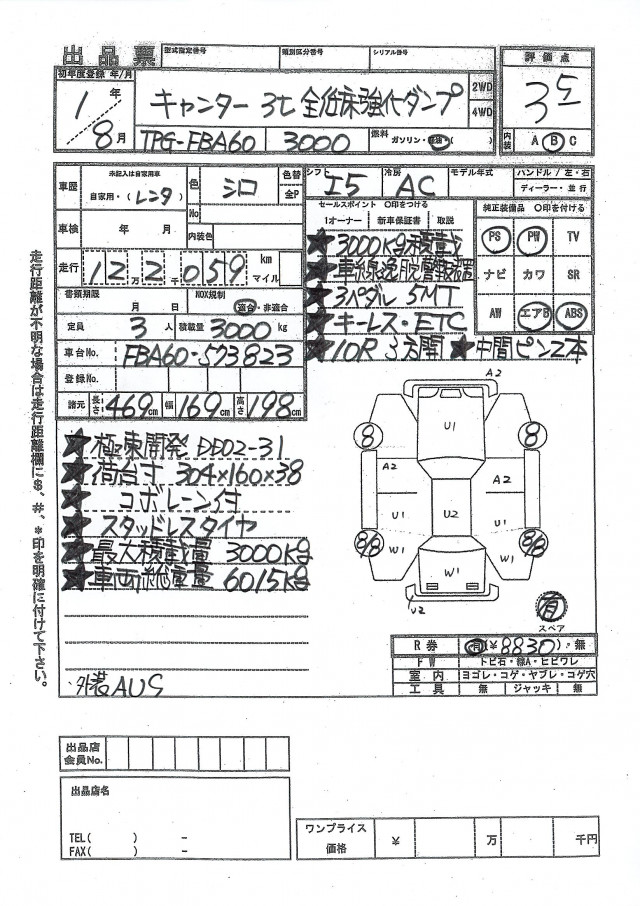 出品票 型式指定番号 類別区分番号 シリアル番号
評価点
3.5
内装 A B C
初年度登録 年/月
1年
8月
キャンター 3t 全低床強化ダンプ
2WD
4WD
TPG-FBA60 3000 燃料 ガソリン・軽油・( )
車歴 未記入は自家用車
自家用・(レンタ)
色 シロ
色替
全P
No
内装色
車検 年 月
走行 12万2千059 km
マイル
書類期限 月 日
NOX規制 適合・非適合
定員 3人 積載量 3000kg
車台No. FBA60-573823
登録No.
諸元 長さ 469cm 幅 169cm 高さ 198cm
シフト I5 冷房 AC モデル年式
ハンドル / 左・右
ディーラー・並行
セールスポイント ○印をつける
1オーナー 新車保証書 取説
純正装備品 ○印を付ける
PS PW TV
ナビ カワ SR
AW エアB ABS
★3000Kg積載
★車線逸脱警報装置
★3ペダル 5MT
★キーレス・ETC
★10R 3方開 ★中間ピン2本
★極東開発 DD02-31
★荷台寸 304×160×38
★コボレーン付
★スタッドレスタイヤ
★最大積載量 3000Kg
★車両総重量 6015Kg
外装AUS
走行距離が不明な場合は走行距離欄に$、#、*印を明確に付けて下さい。
A2
U1
8 8
A2 A2
U1 U2 U1
8/8 W1 W1 8/8
W1
U2
有
スペア
R券 有(¥8830)・無
FW トビ石・線A・ヒビワレ
室内 ヨゴレ・コゲ・ヤブレ・コゲ穴
工具 無 ジャッキ 無
出品店
会員No.
出品店名
TEL( ) -
FAX( ) -
ワンプライス
価格
¥ 万 千円